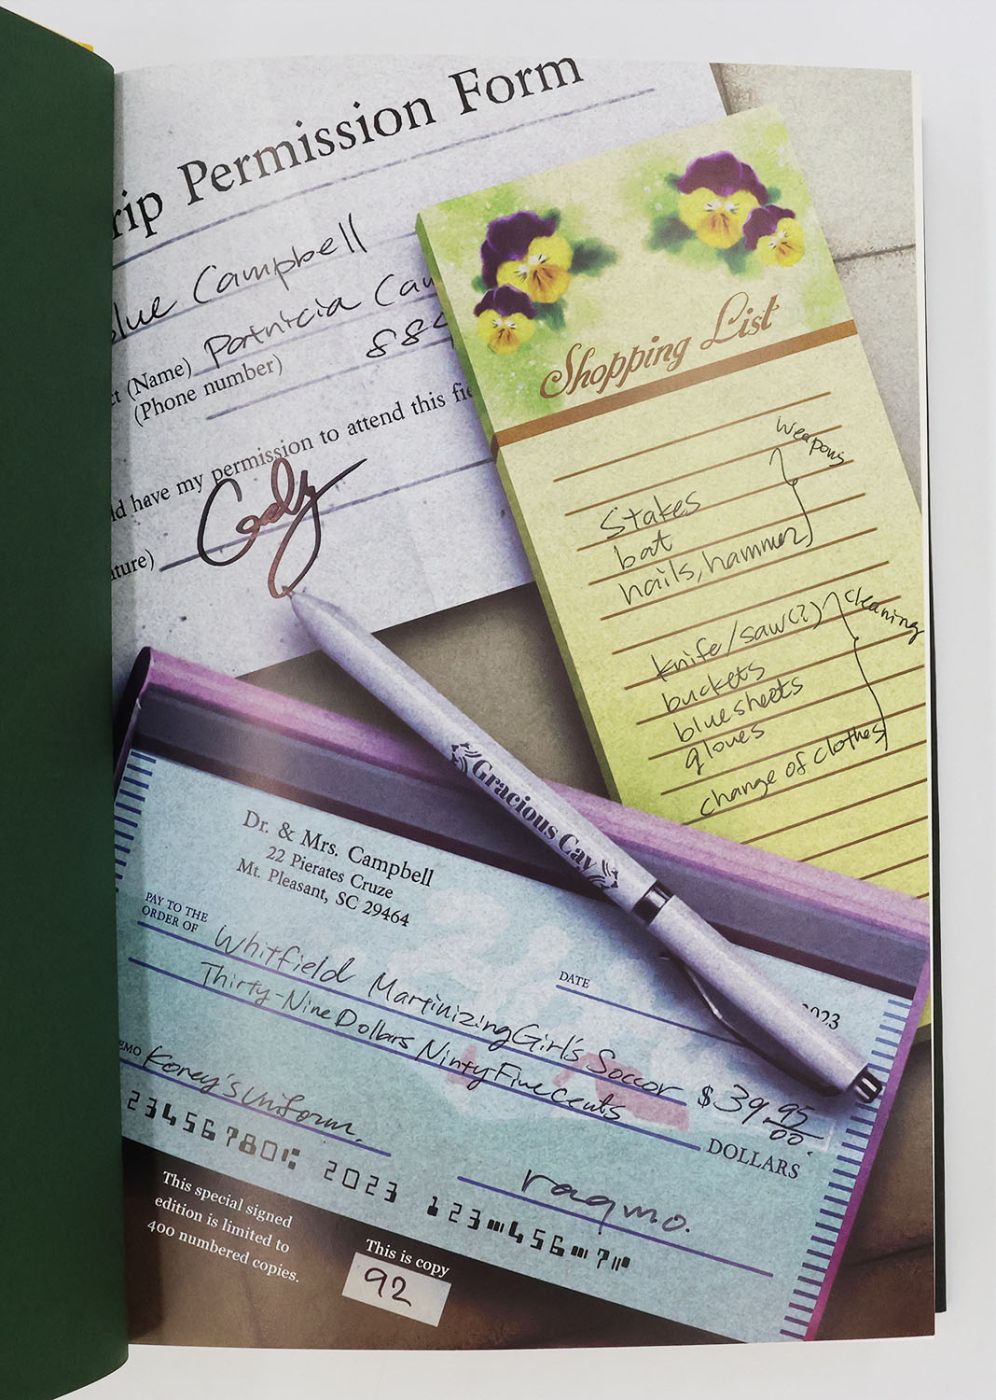 rip Permission Form
Blue Campbell
ct (Name) Patricia Cam
(Phone number) 886
ld have my permission to attend this fie
ture)
Shopping List
weapons
Stakes
bat
nails, hammer
cleaning
knife/saw(?)
buckets
bluesheets
gloves
change of clothes
Gracious Cay
Dr. & Mrs. Campbell
22 Pierates Cruze
Mt. Pleasant, SC 29464
PAY TO THE
ORDER OF
Whitfield Martinizing Girl's Soccor $39.95
00
DATE
2023
Thirty-Nine Dollars Ninty Five Cents
DOLLARS
EMO Korey's Uniform.
23456780 2023 123 456 7
This special signed
edition is limited to
400 numbered copies.
This is copy
92